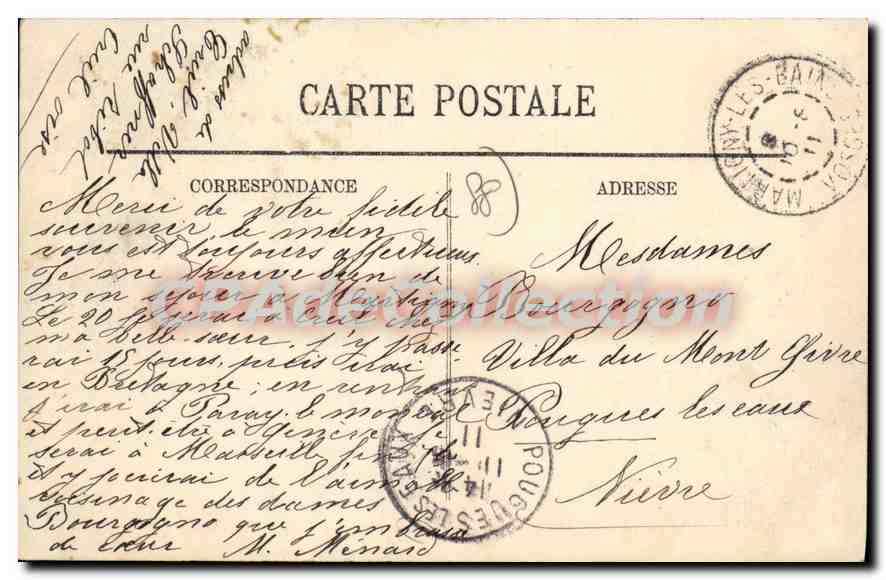 adresse de
Creil. Ville
rue Ribot
Creil oise
CARTE POSTALE
MARTIGNY-LES-BAINS VOSGES
CORRESPONDANCE
ADRESSE
88
Merci de votre fidèle
souvenir, le mien
vous est toujours affectueux.
Je me trouve bien de
mon séjour à Martigny
Le 20 je serai à Creil chez
ma belle-sœur, j'y passe
rai 15 jours, puis irai
en Bretagne; en
j'irai à Paray-le-monial
et peut-être à
serai à Marseille fin
et y jouirai de l'aimable
voisinage des dames
Bourgogno que j'embrasse
de cœur M. Ménard
Mesdames
Bourgogno
Villa du Mont Givre
Pougues les eaux
Nièvre
POUGUES LES EAUX NIEVRE
CPA de Collection